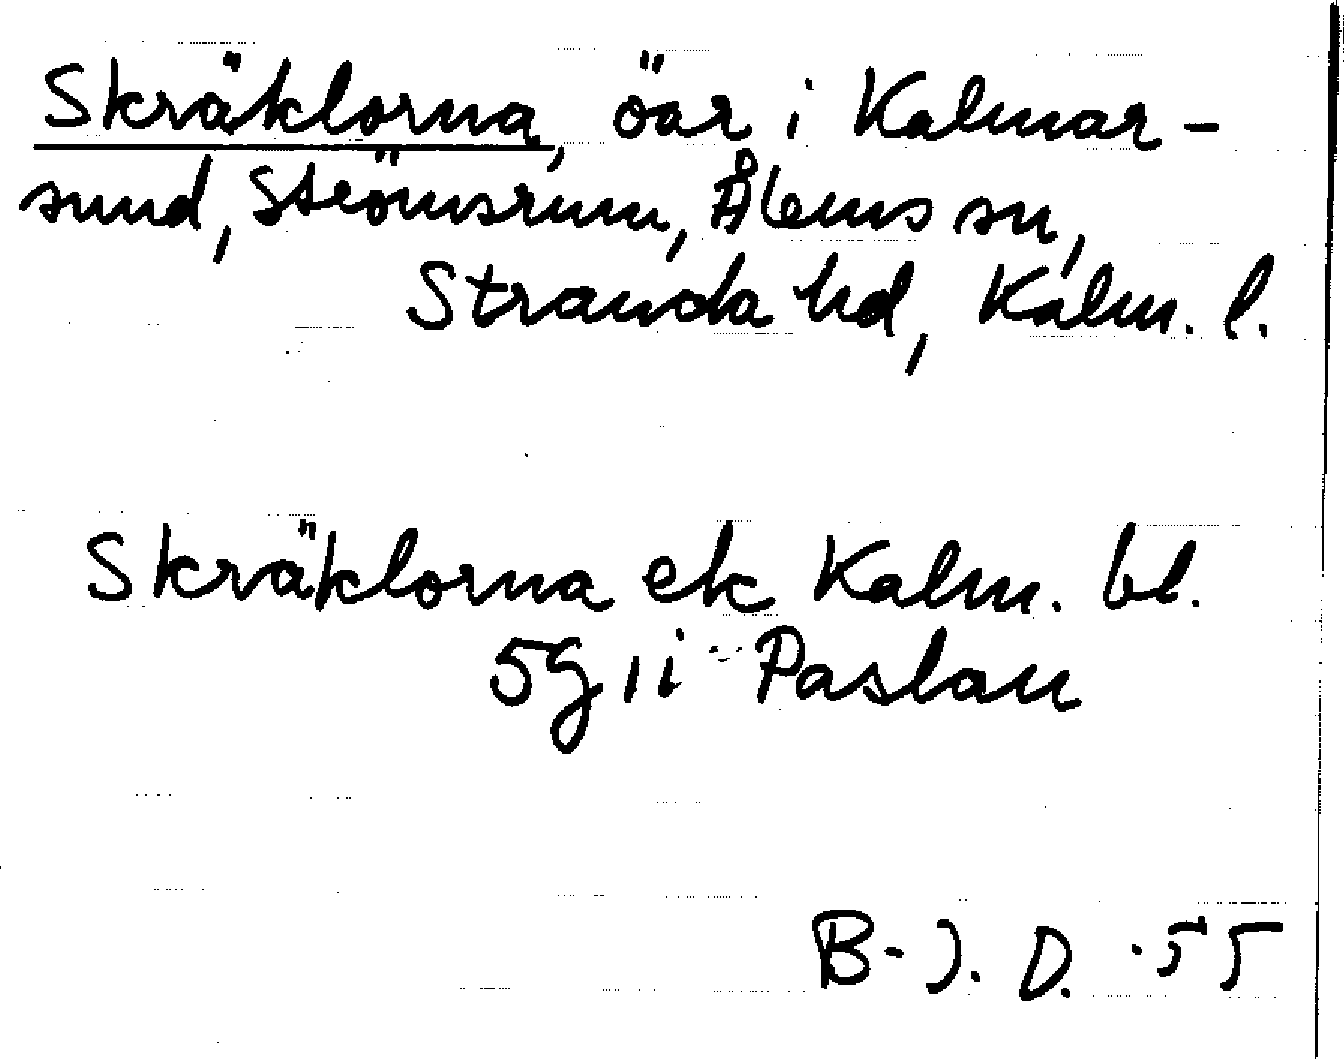 Skräklorna, öar i Kalmar-
sund, Strömsrum, Ålems sn,
Stranda hd, Kalm. l.
Skräklorna ek Kalm. bl.
5g, i Paslau
B-J. D. 55